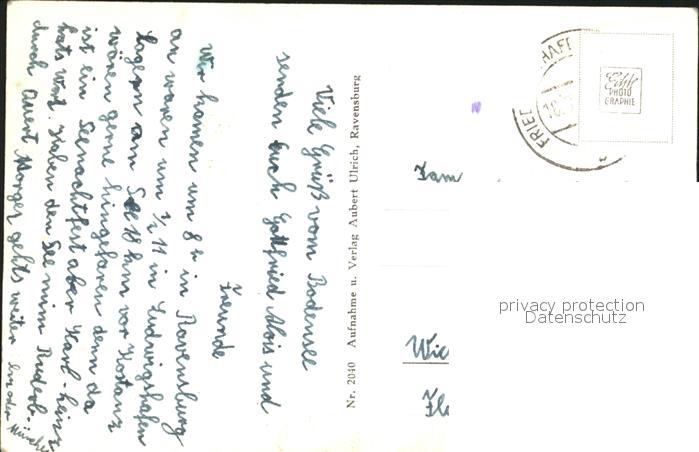 Viele Grüß vom Bodensee
senden Euch Gottfried Alois und
Freunde
Wir kamen um 8 h in Ravensburg
an waren um ½ 11 in Ludwigshafen
lagern am See 18 km vor Kostanz
wären gerne hingefaren denn da
ist ein Seenachtfest aber Karl-heinz
hats wol. Haben den See mim Ruderb.
durch Quert Morgen gehts weiter
Nr. 2040 Aufnahme u. Verlag Aubert Ulrich, Ravensburg
FRIED
HAF
Echte
PHOTO
GRAPHIE
Fam
privacy protection
Datenschutz
Wie